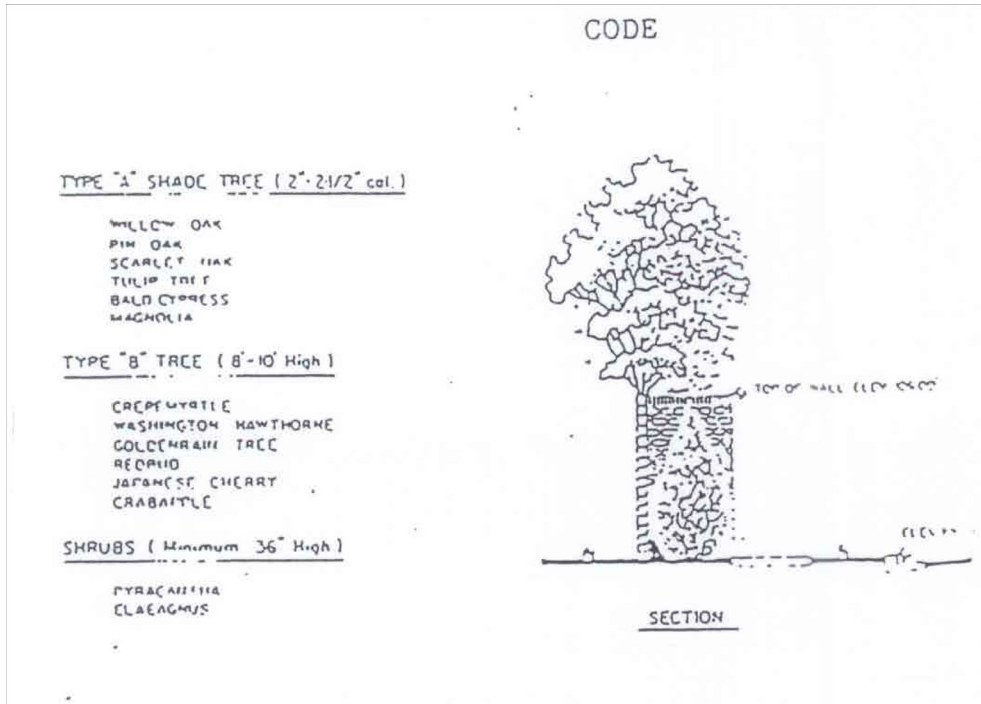 CODE
TYPE "A" SHADE TREE (2"-2-1/2" cal.)
WILLOW OAK
PIN OAK
SCARLET OAK
TULIP TREE
BALD CYPRESS
MAGNOLIA
TYPE "B" TREE (8'-10' High)
CREPEMYRTLE
WASHINGTON HAWTHORNE
GOLDENRAIN TREE
REDBUD
JAPANESE CHERRY
CRABAPPLE
SHRUBS (Minimum 36" High)
PYRACANTHA
ELAEAGNUS
TOP OF WALL
SECTION